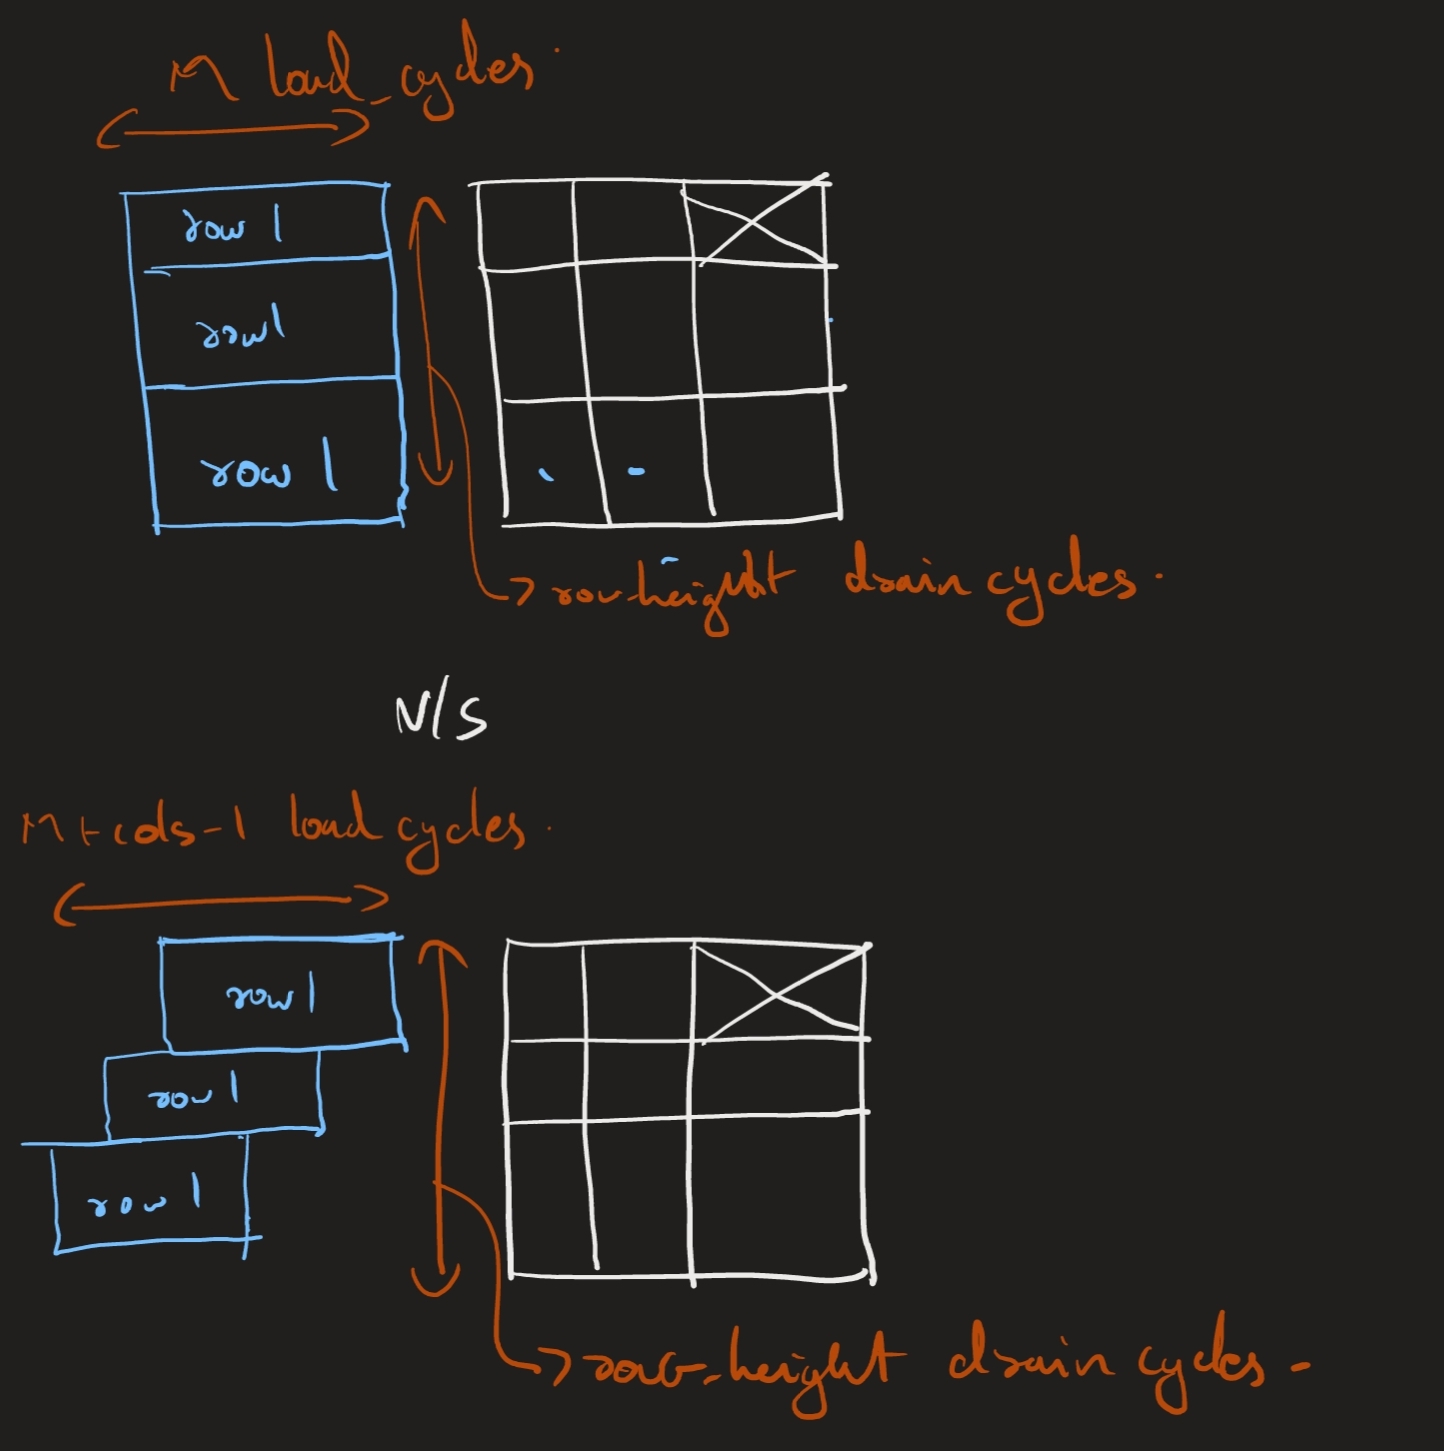 M load_cycles.
row 1
row1
row 1
row-height drain cycles.
N/S
M+cols-1 load cycles.
row 1
row 1
row 1
row-height drain cycles.